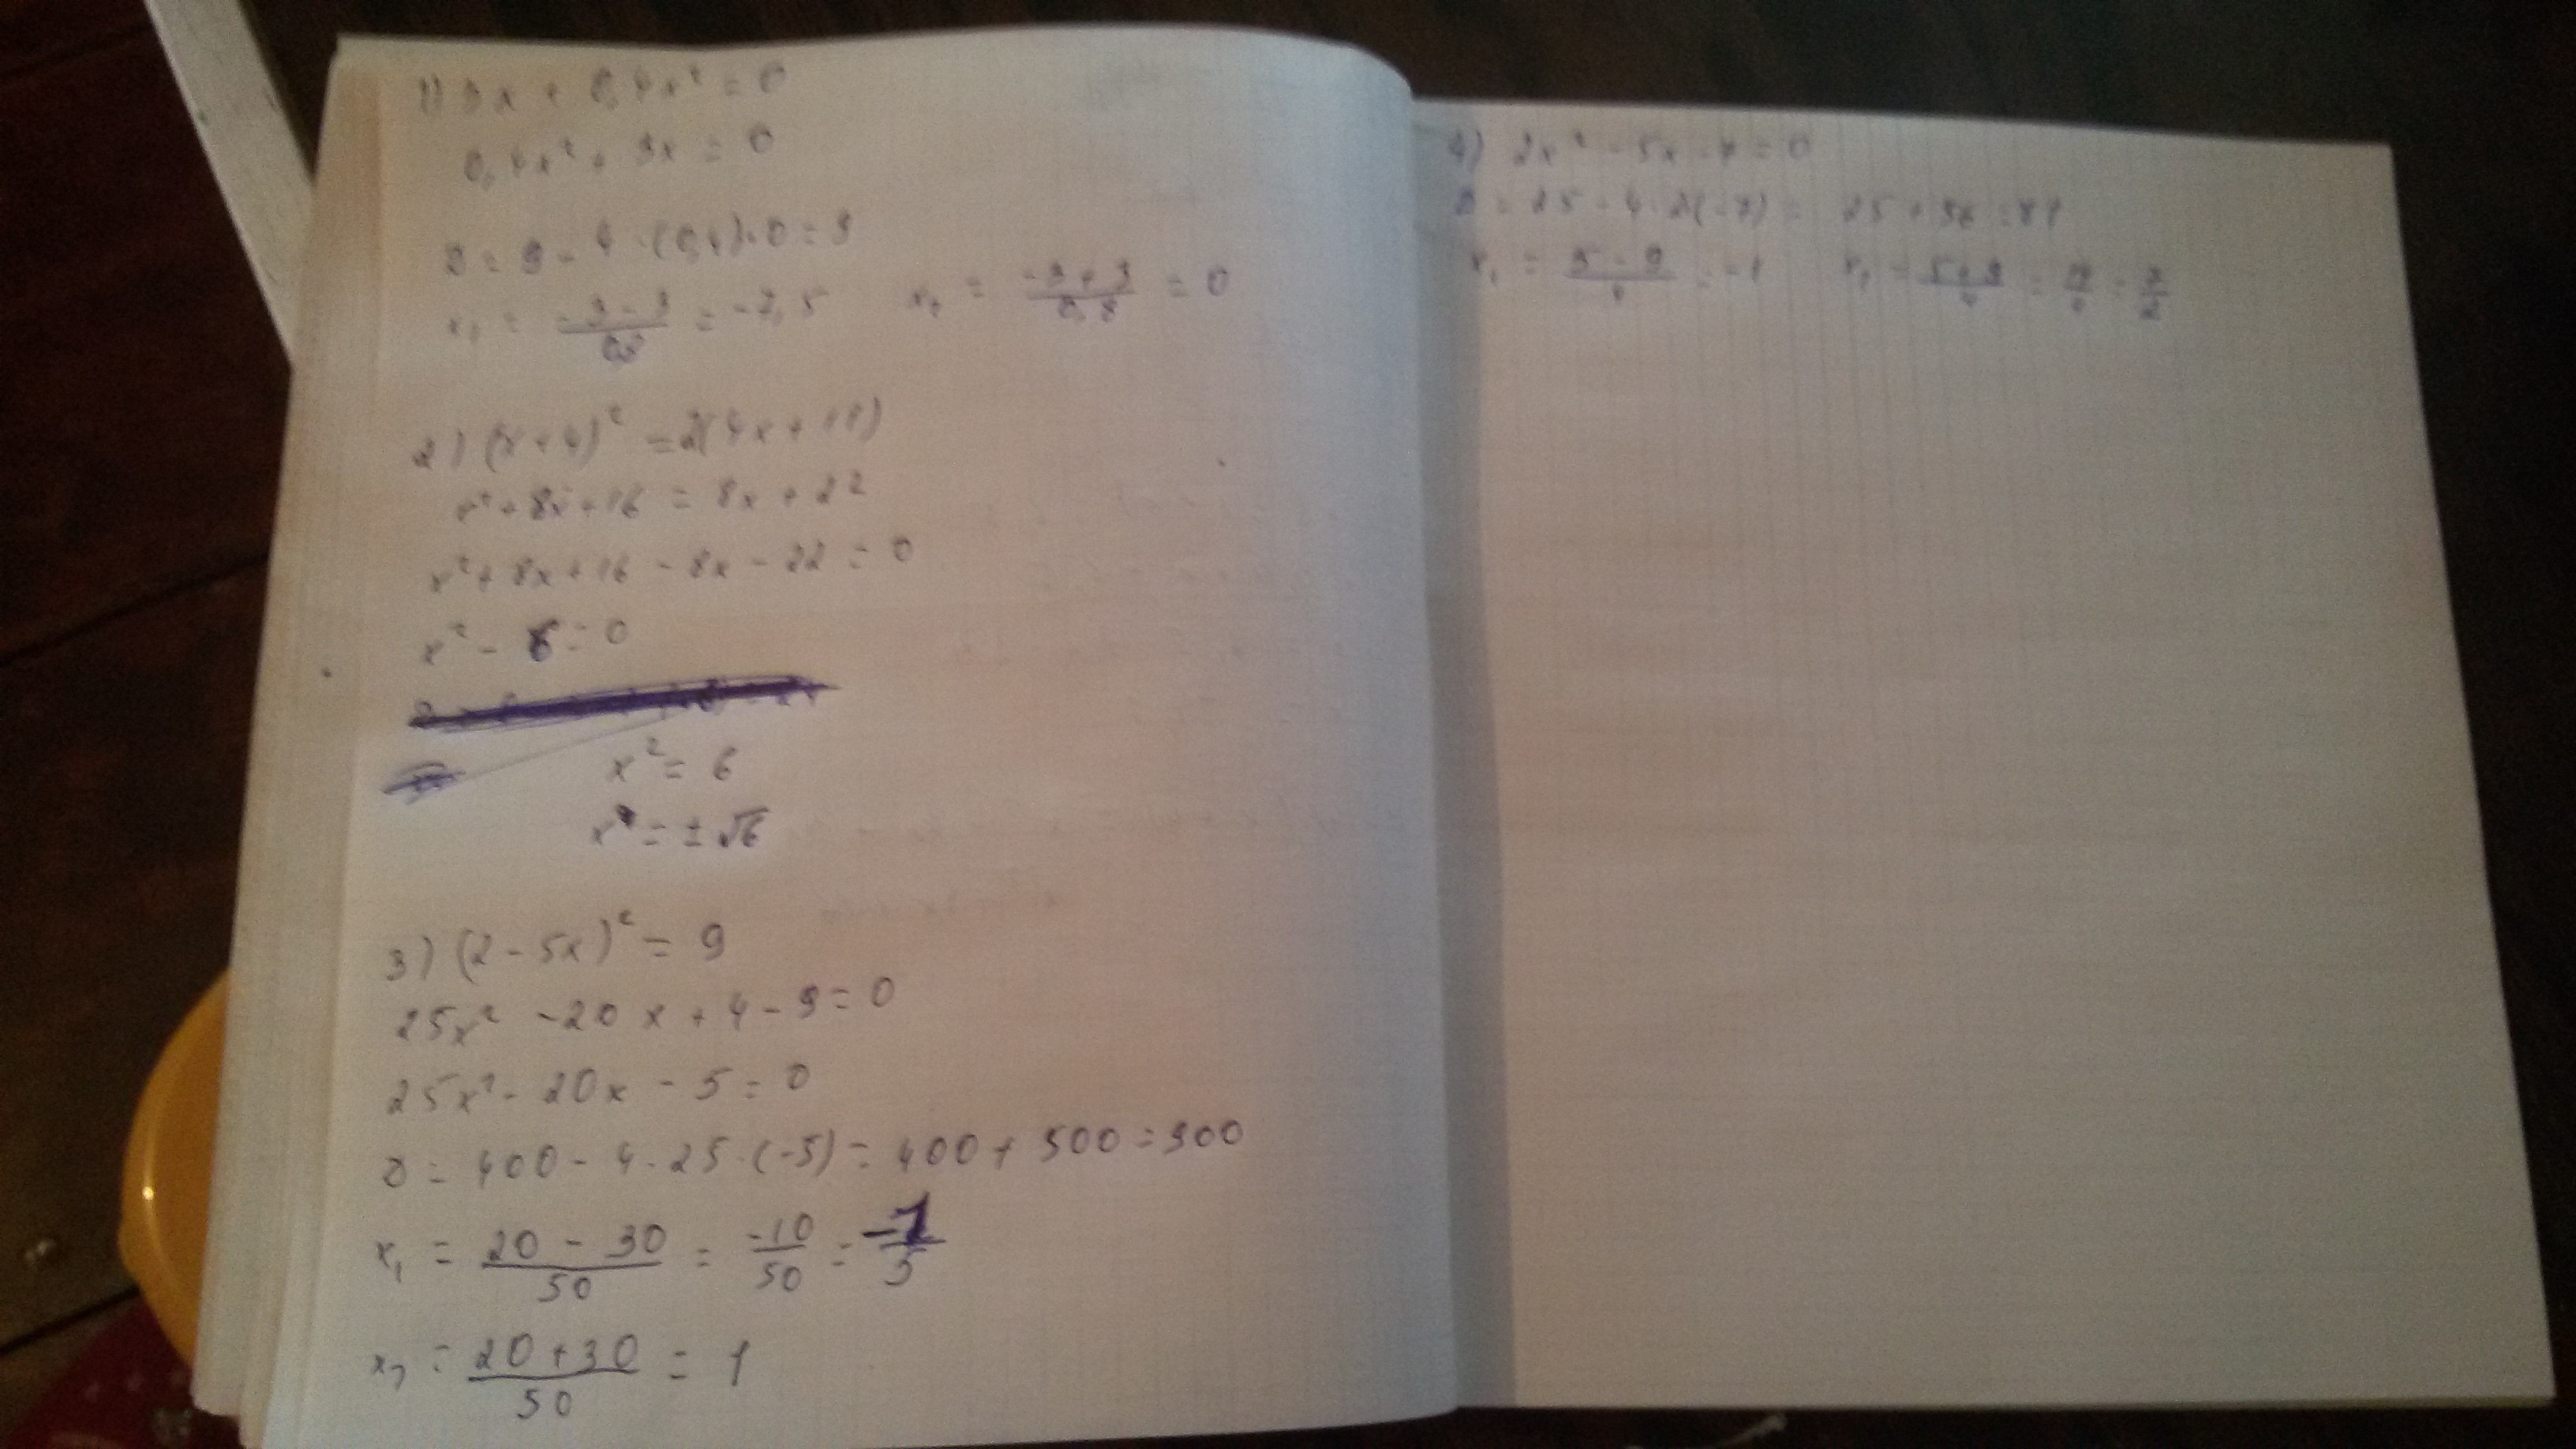 1) 3x + 0,4x² = 0
0,4x² + 3x = 0
D = 9 - 4 · (0,4) · 0 = 9
x₁ = (-3 - 3)/0,8 = -7,5   x₂ = (-3 + 3)/0,8 = 0
2) (x + 4)² = 2(4x + 11)
x² + 8x + 16 = 8x + 22
x² + 8x + 16 - 8x - 22 = 0
x² - 6 = 0
x² = 6
x = ± √6
3) (2 - 5x)² = 9
25x² - 20x + 4 - 9 = 0
25x² - 20x - 5 = 0
D = 400 - 4 · 25 · (-5) = 400 + 500 = 900
x₁ = (20 - 30)/50 = -10/50 = -1/5
x₂ = (20 + 30)/50 = 1
4) 2x² - 5x - 7 = 0
D = 25 - 4 · 2(-7) = 25 + 56 = 81
x₁ = (5 - 9)/4 = -1   x₂ = (5 + 9)/4 = 14/4 = 7/2